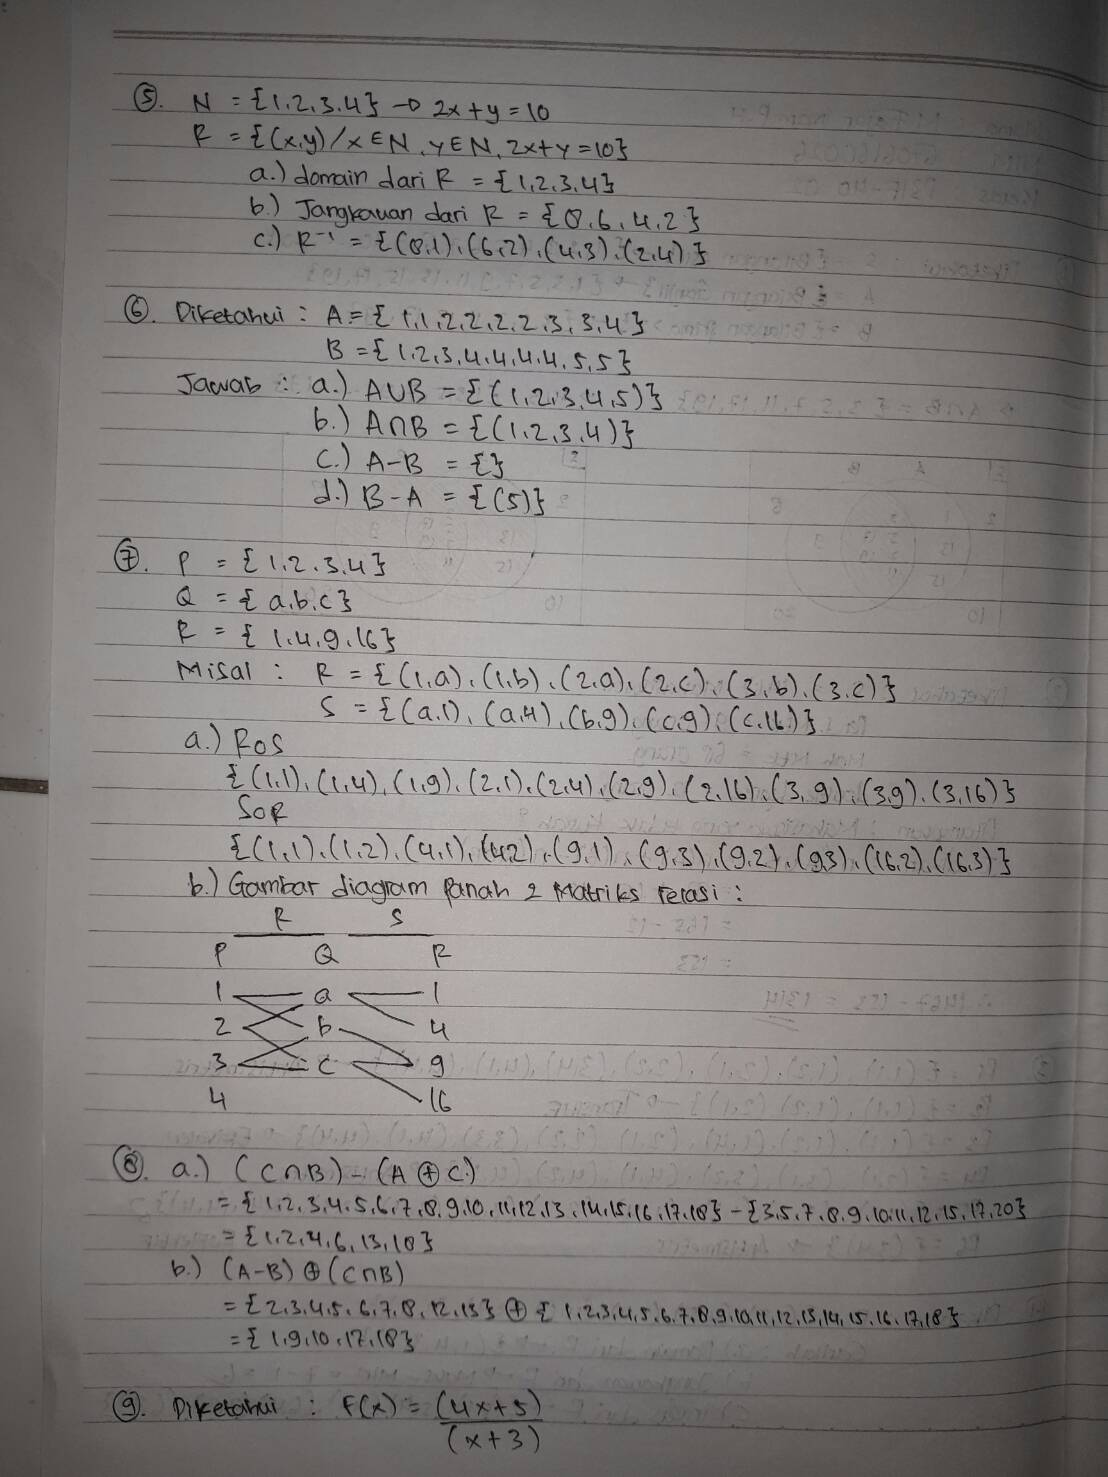 ⑤. N = {1,2,3,4} → 2x+y=10
R = {(x,y)/x∈N, y∈N, 2x+y=10}
a.) domain dari R = {1,2,3,4}
b.) Jangkauan dari R = {8,6,4,2}
c.) R⁻¹ = {(8,1),(6,2),(4,3),(2,4)}
⑥. Diketahui : A = {1,1,2,2,2,2,3,3,4}
B = {1,2,3,4,4,4,4,5,5}
Jawab : a.) A∪B = {(1,2,3,4,5)}
b.) A∩B = {(1,2,3,4)}
c.) A-B = {}
d.) B-A = {(5)}
⑦. P = {1,2,3,4}
Q = {a,b,c}
R = {1,4,9,16}
Misal : R = {(1,a),(1,b),(2,a),(2,c),(3,b),(3,c)}
S = {(a,1),(a,4),(b,9),(c,9),(c,16)}
a.) RoS
{(1,1),(1,4),(1,9),(2,1),(2,4),(2,9),(2,16),(3,9),(3,9),(3,16)}
SoR
{(1,1),(1,2),(4,1),(4,2),(9,1),(9,3),(9,2),(9,3),(16,2),(16,3)}
b.) Gambar diagram panah 2 Matriks relasi :
R S
P Q R
1 a 1
2 b 4
3 c 9
4 16
⑧. a.) (C∩B) - (A⊕C)
= {1,2,3,4,5,6,7,8,9,10,11,12,13,14,15,16,17,18} - {3,5,7,8,9,10,11,12,15,17,20}
= {1,2,4,6,13,18}
b.) (A-B) ⊕ (C∩B)
= {2,3,4,5,6,7,8,12,13} ⊕ {1,2,3,4,5,6,7,8,9,10,11,12,13,14,15,16,17,18}
= {1,9,10,17,18}
⑨. Diketahui : F(x) = (4x+5)
(x+3)